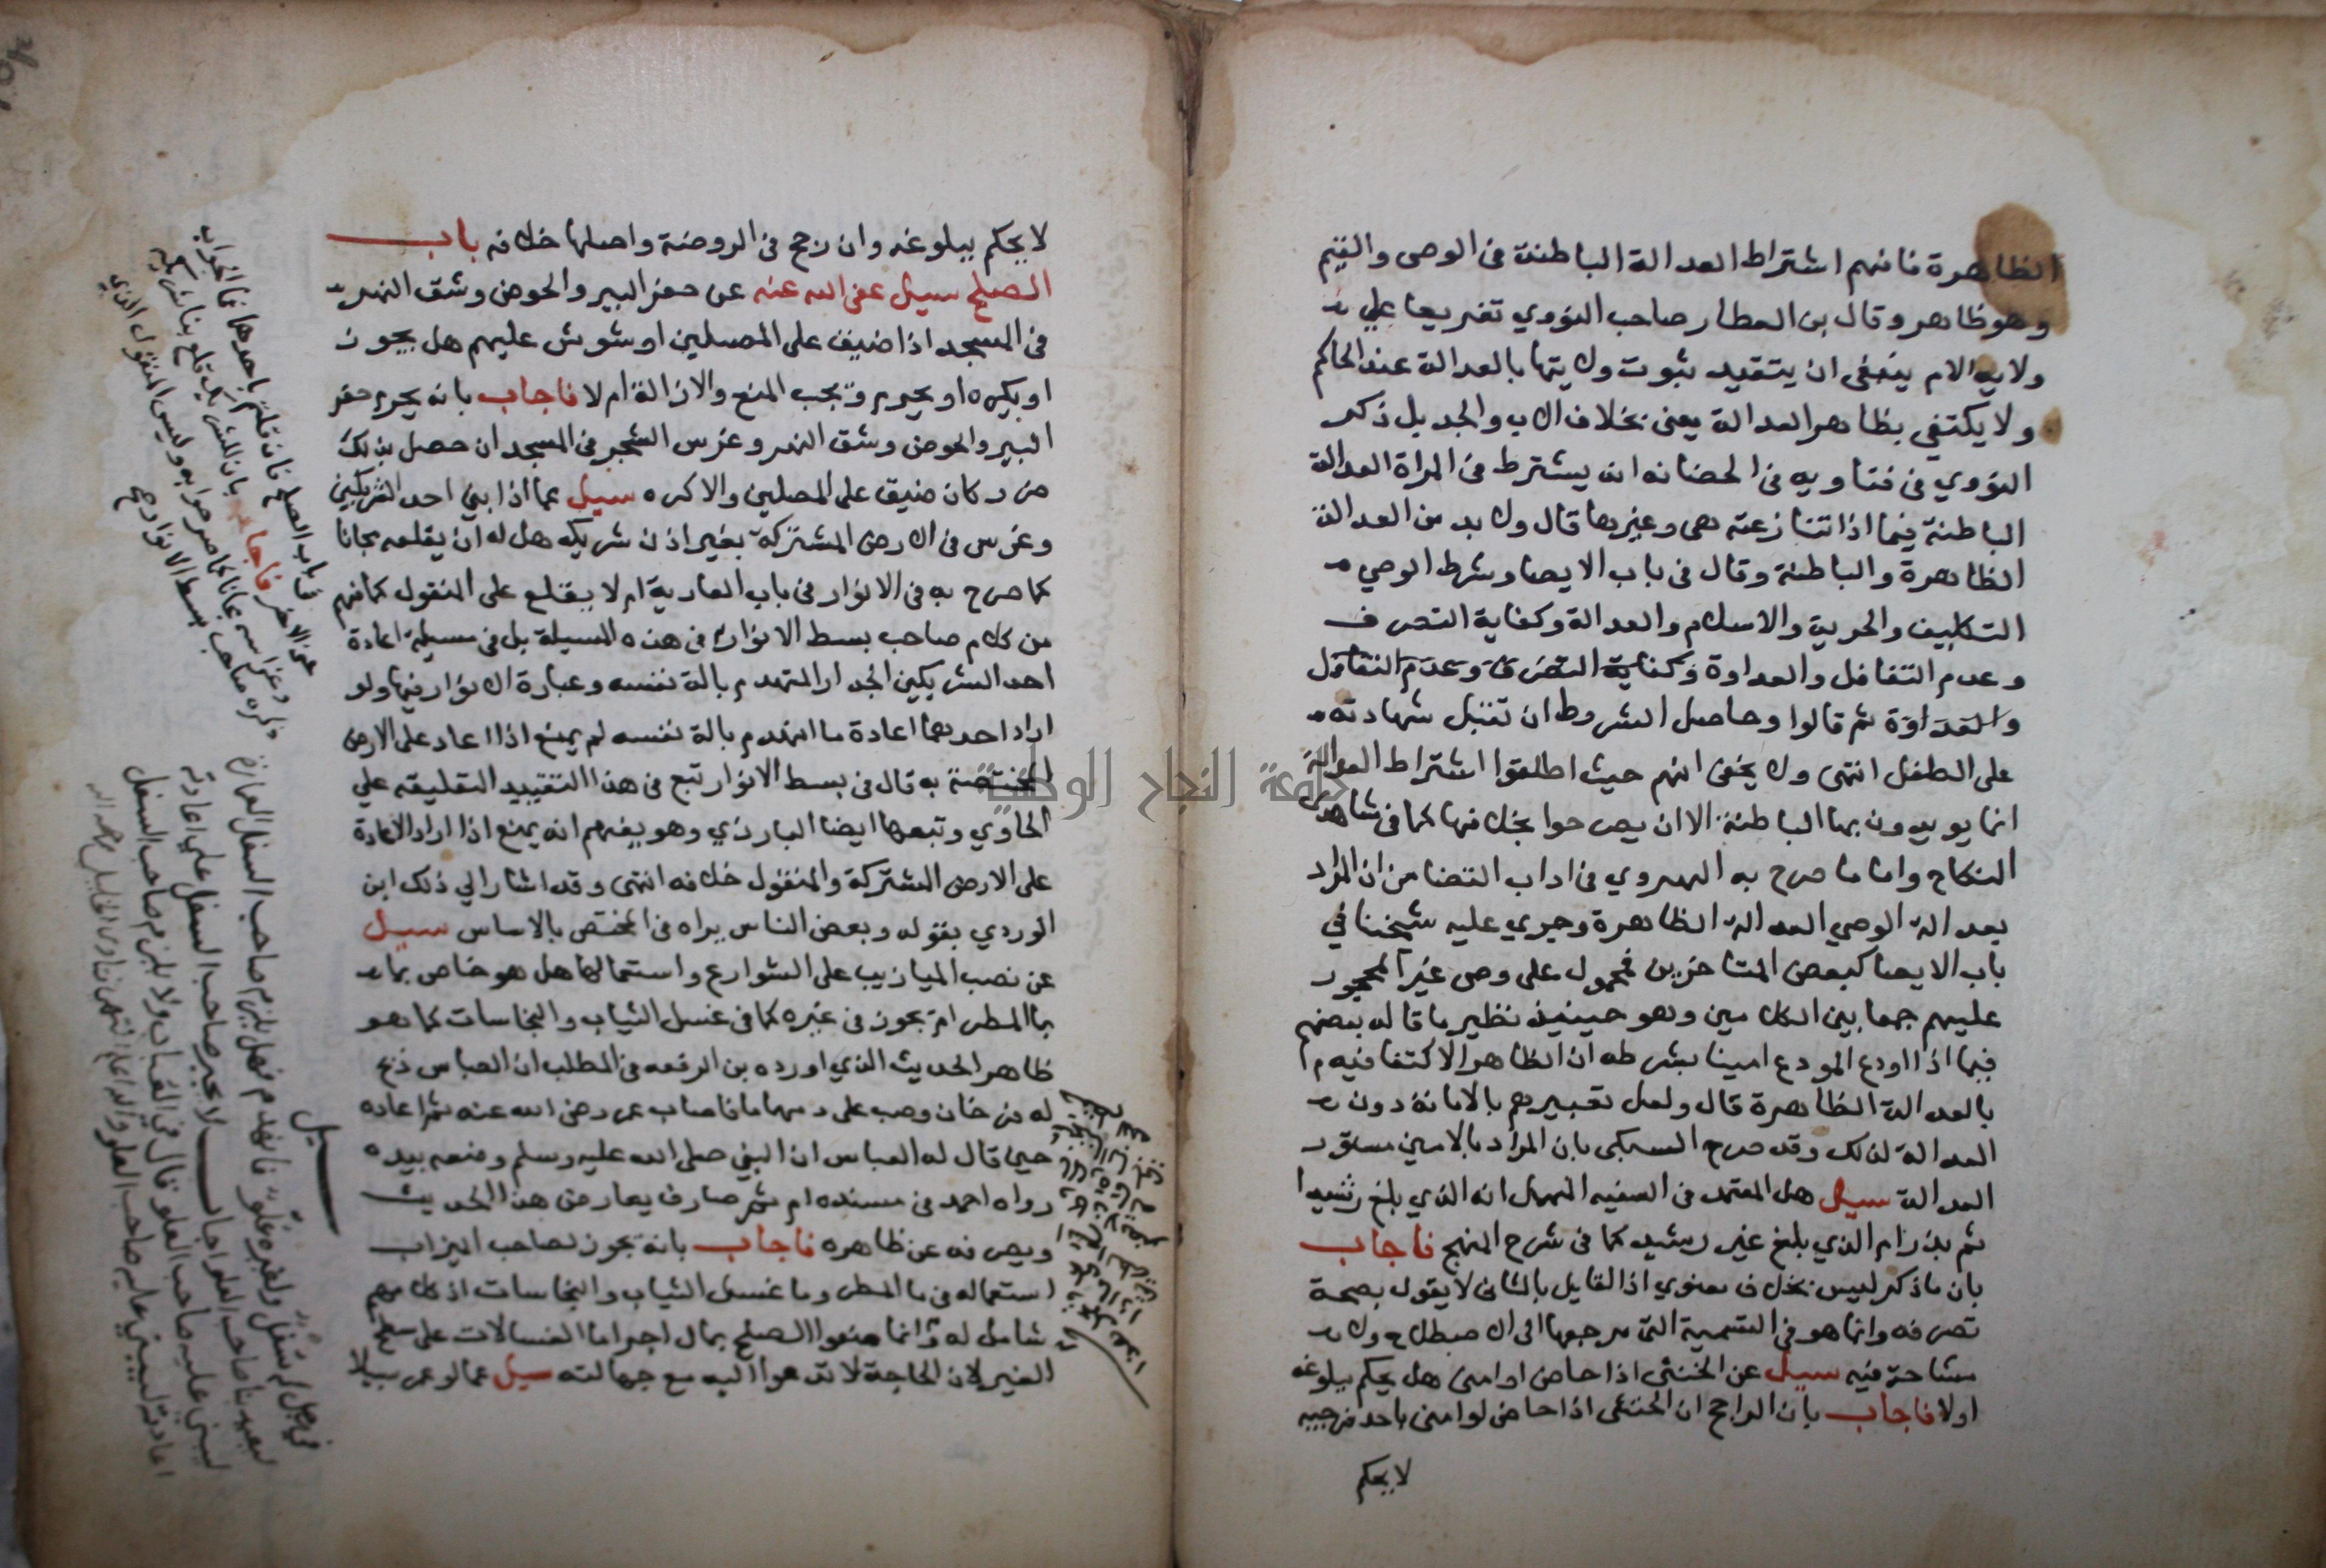 الظاهرة فافهم اشتراط العدالة الباطنة في الوصي والقيم
وهو ظاهر وقال بن العطار صاحب النووي تفريعا علي
ولاية الام ينبغي ان يتقيد ثبوت ولايتها بالعدالة عند الحاكم
ولا يكتفي بظاهر العدالة يعني بخلاف الاب والجد بل ذكر
النووي في فتاويه في الحضانه انه يشترط في المراة العدالة
الباطنة فيما اذا تنازعته هي وغيرها قال ولابد من العدالة
الظاهرة والباطنة وقال في باب الايصا وشرط الوصي
التكليف والحرية والاسلام والعدالة وكفاية التصرف
وعدم التغافل والعداوة وكفاية التصرف وعدم التغافل
والعداوة ثم قالوا وحاصل الشروط ان تقبل شهادته
على الطفل انتهى ولا يخفى انهم حيث اطلقوا اشتراط العدالة
انما يريدون بها الباطنة الا ان يصرحوا بخلافها كما في شاهدي
النكاح واما ما صرح به الهروي في اداب القضا من ان المراد
بعدالة الوصي العدالة الظاهرة وجري عليه شيخنا في
باب الايصا كبعض المتاخرين فمحمول على وصي غير المحجور
عليهم جمعا بين الكلامين وهو حينيذ نظير ما قاله بعضهم
فيما اذا اودع المودع امينا بشرطه ان الظاهر الاكتفا فيه
بالعدالة الظاهرة قال ولعل تعبيرهم بالامانة دون
العدالة لذلك وقد صرح السبكي بان المراد بالامين مستور
العدالة سيل هل المعتمد في السفيه المهمل انه الذي بلغ رشيدا
ثم بذر ام الذي بلغ غير رشيد كما في شرح المنهج فاجاب
بان ما ذكر ليس بخلاف معنوي اذ القايل بالثاني لا يقول بصحة
تصرفه وانما هو في التسمية التي مرجعها الى الاصطلاح ولا
مشاحة فيه سيل عن الخنثى اذا حاض او امنى هل يحكم ببلوغه
اولا فاجاب بان الراجح ان الخنثى اذا حاض او امنى باحد فرجيه
لا يحكم
لا يحكم ببلوغه وان رجح في الروضة واصلها خلافه باب
الصلح سيل عفى الله عنه عن حفر البير والحوض وشق النهر
في المسجد اذا ضيف على المصلين او شوش عليهم هل يجوز
او يكره او يحرم ويجب المنع والازالة ام لا فاجاب بانه يحرم حفر
البير والحوض وشق النهر وغرس الشجر في المسجد ان حصل بذلك
ضرر كان ضيق على المصلين والا كره سيل عما اذا بني احد الشريكين
وغرس في الارض المشتركة بغير اذن شريكه هل له ان يقلعه مجانا
كما صرح به في الانوار في باب العارية ام لا يقلع على المنقول كما فهم
من كلام صاحب بسط الانوار في هذه المسيلة بل في مسيلة اعادة
احد الشريكين الجدار المنهدم بالة نفسه وعبارة الانوار فيها ولو
اراد احدهما اعادة ما انهدم بالة نفسه لم يمنع اذا اعاد على الارض
المختصة به قال في بسط الانوار تبع في هذا التقييد التعليقه علي
الحاوي وتبعها ايضا البارزي وهو يفهم انه يمنع اذا اراد الاعادة
على الارض المشتركة والمنقول خلافه انتهى وقد اشار الي ذلك ابن
الوردي بقوله وبعض الناس يراه في المختص بالاساس سيل
عن نصب الميازيب على الشوارع واستعمالها هل هو خاص بما
بما المطر ام يجوز في غيره كما في غسل الثياب والنجاسات كما هو
ظاهر الحديث الذي اورده بن الرفعه في المطلب ان العباس ذبح
له فرخان وصب على دمهما ما فاصاب عمر رضي الله عنه ثم اعاده
حين قال له العباس ان النبي صلى الله عليه وسلم وضعه بيده
رواه احمد في مسنده ام ثم صارف يعارض هذا الحديث
ويصرفه عن ظاهره فاجاب بانه يجوز لصاحب الميزاب
استعماله في ما المطر وما غسل الثياب والنجاسات اذ كلامهم
شامل له وانما منعوا الصلح بمال اجرا ما الغسالات على سطح
الغير لان الحاجة لا تدعوا اليه مع جهالته سيل عما لو عمر
في باب الصلح فان قلتم باحدهما فما الجواب
عن الاخر فاجاب بان للشريك قلع بنا شريكه
وغراسه مجانا كما صرحوا به وليس المنقول الذي
ذكره صاحب بسط الانوار رجح
سيل
في رجل له سفل ولغيره علو فانهدم فهل يلزم صاحب السفل العمارة
ليعيد بنا صاحب العلو اجاب لا يجبر صاحب السفل علي اعادته
ليبني عليه صاحب العلو قال في العباب ولا يلزم صاحب السفل
اعادته ليبني عليه صاحب العلو والله اعلم انتهى فتاوى الخليلي رحمه الله